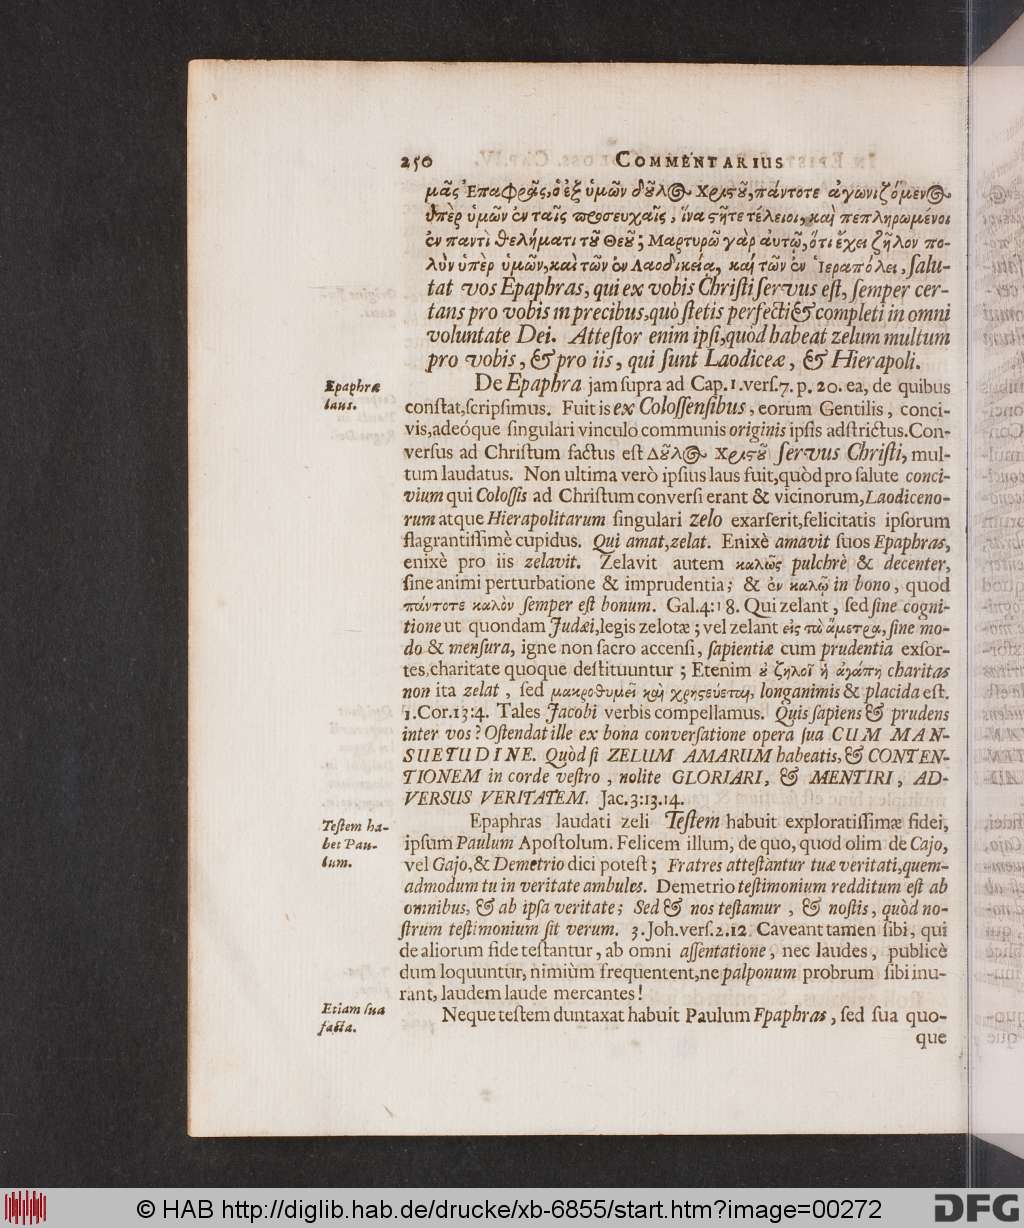 250 COMMENTARIUS
μᾶς Ἐπαφρᾶς, ὁ ἐξ ὑμῶν δοῦλος Χριστοῦ, πάντοτε ἀγωνιζόμενος
ὑπὲρ ὑμῶν ἐν ταῖς προσευχαῖς, ἵνα στῆτε τέλειοι, καὶ πεπληρωμένοι
ἐν παντὶ θελήματι τοῦ Θεοῦ; Μαρτυρῶ γὰρ αὐτῷ, ὅτι ἔχει ζῆλον πο-
λὺν ὑπὲρ ὑμῶν, καὶ τῶν ἐν Λαοδικείᾳ, καὶ τῶν ἐν Ἱεραπόλει, ſalu-
tat vos Epaphras, qui ex vobis Chriſti ſervus eſt, ſemper cer-
tans pro vobis in precibus, quò ſtetis perfecti & completi in omni
voluntate Dei. Atteſtor enim ipſi, quòd habeat zelum multum
pro vobis, & pro iis, qui ſunt Laodiceæ, & Hierapoli.
Epaphræ
laus.
De Epaphra jam ſupra ad Cap. 1. verſ. 7. p. 20. ea, de quibus
conſtat, ſcripſimus. Fuit is ex Coloſſenſibus, eorum Gentilis, conci-
vis, adeóque ſingulari vinculo communis originis ipſis adſtrictus. Con-
verſus ad Chriſtum factus eſt Δοῦλος Χριστοῦ ſervus Chriſti, mul-
tum laudatus. Non ultima verò ipſius laus fuit, quòd pro ſalute conci-
vium qui Coloſſis ad Chriſtum converſi erant & vicinorum, Laodiceno-
rum atque Hierapolitarum ſingulari zelo exarſerit, felicitatis ipſorum
flagrantiſſimè cupidus. Qui amat, zelat. Enixè amavit ſuos Epaphras,
enixè pro iis zelavit. Zelavit autem καλῶς pulchrè & decenter,
ſine animi perturbatione & imprudentia; & ἐν καλῷ in bono, quod
πάντοτε καλὸν ſemper eſt bonum. Gal. 4:18. Qui zelant, ſed ſine cogni-
tione ut quondam Judæi, legis zelotæ; vel zelant εἰς τὰ ἄμετρα, ſine mo-
do & menſura, igne non ſacro accenſi, ſapientiæ cum prudentia exſor-
tes, charitate quoque deſtituuntur; Etenim οὐ ζηλοῖ ἡ ἀγάπη charitas
non ita zelat, ſed μακροθυμεῖ καὶ χρηστεύεται, longanimis & placida eſt.
1. Cor. 13:4. Tales Jacobi verbis compellamus. Quis ſapiens & prudens
inter vos? Oſtendat ille ex bona converſatione opera ſua CUM MAN-
SUETUDINE. Quòd ſi ZELUM AMARUM habeatis, & CONTEN-
TIONEM in corde veſtro, nolite GLORIARI, & MENTIRI, AD-
VERSUS VERITATEM. Jac. 3:13.14.
Teſtem ha-
bet Pau-
lum.
Epaphras laudati zeli Teſtem habuit exploratiſſimæ fidei,
ipſum Paulum Apoſtolum. Felicem illum, de quo, quod olim de Cajo,
vel Gajo, & Demetrio dici poteſt; Fratres atteſtantur tuæ veritati, quem-
admodum tu in veritate ambules. Demetrio teſtimonium redditum eſt ab
omnibus, & ab ipſa veritate; Sed & nos teſtamur, & noſtis, quòd no-
ſtrum teſtimonium ſit verum. 3. Joh. verſ. 2.12. Caveant tamen ſibi, qui
de aliorum fide teſtantur, ab omni aſſentatione, nec laudes, publicè
dum loquuntur, nimiùm frequentent, ne palponum probrum ſibi inu-
rant, laudem laude mercantes!
Etiam ſua
facta.
Neque teſtem duntaxat habuit Paulum Epaphras, ſed ſua quo-
que
© HAB http://diglib.hab.de/drucke/xb-6855/start.htm?image=00272
DFG